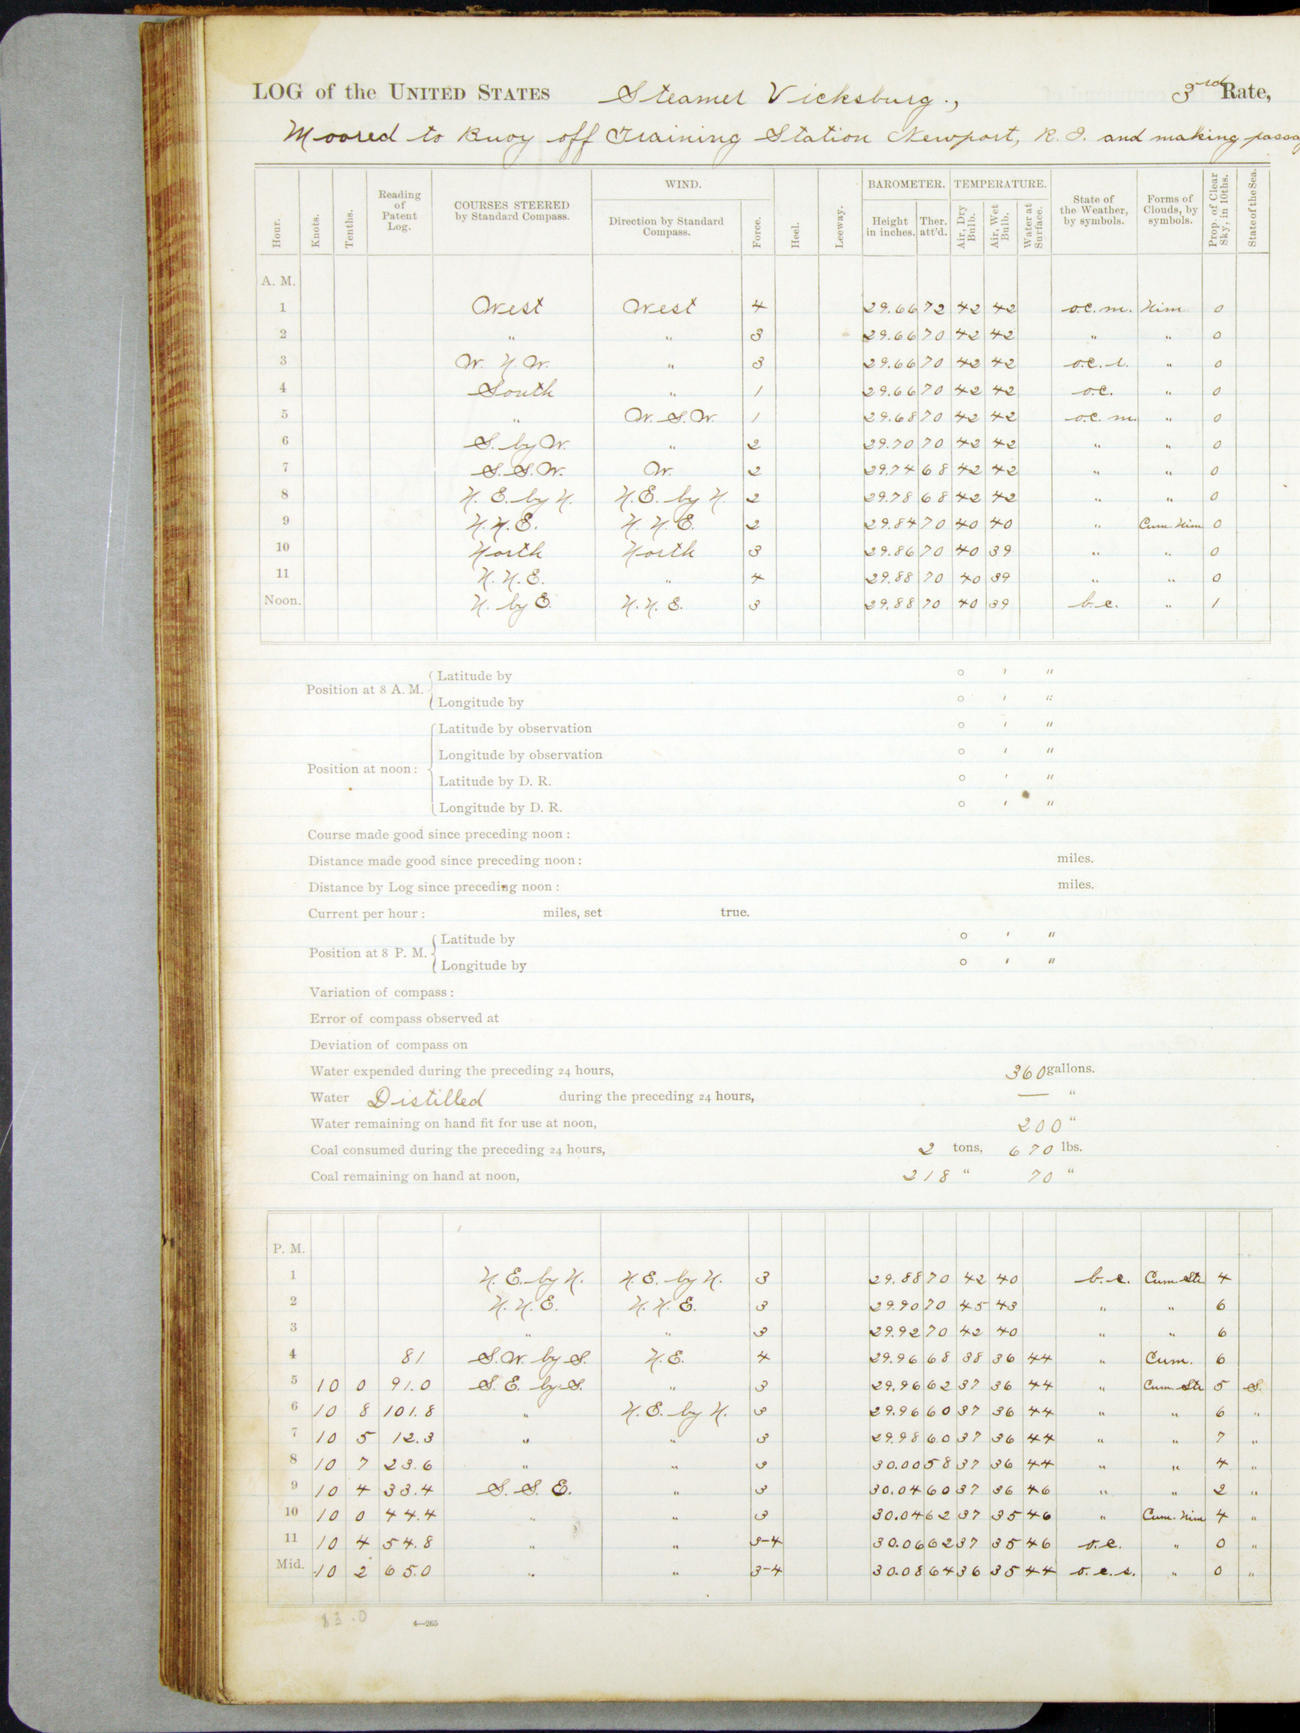 LOG of the UNITED STATES Steamer Vicksburg., 3rd Rate,
Moored to Buoy off Training Station Newport, R. I. and making passa
Hour. Knots. Tenths. Reading of Patent Log. COURSES STEERED by Standard Compass. WIND. Direction by Standard Compass. Force. Heel. Leeway. BAROMETER. Height in inches. Ther. att'd. TEMPERATURE. Air, Dry Bulb. Air, Wet Bulb. Water at Surface. State of the Weather, by symbols. Forms of Clouds, by symbols. Prop. of Clear Sky, in 10ths. State of the Sea.
A. M.
1 West West 4 29.66 72 42 42 o.c.m. Nim 0
2 " " 3 29.66 70 42 42 " " 0
3 W. N. W. " 3 29.66 70 42 42 o.c. " 0
4 South " 1 29.66 70 42 42 o.c. " 0
5 " W. S. W. 1 29.68 70 42 42 o.c. m. " 0
6 S. by W. " 2 29.70 70 42 42 " " 0
7 S. S. W. W. 2 29.74 68 42 42 " " 0
8 N. E. by N. N. E. by N. 2 29.78 68 42 42 " " 0
9 N. N. E. N. N. E. 2 29.84 70 40 40 " Cum. Nim 0
10 North North 3 29.86 70 40 39 " " 0
11 N. N. E. " 4 29.88 70 40 39 " " 0
Noon. N. by E. N. N. E. 3 29.88 70 40 39 b.c. " 1
Position at 8 A. M. Latitude by ° ' "
Longitude by ° ' "
Position at noon: Latitude by observation ° ' "
Longitude by observation ° ' "
Latitude by D. R. ° ' "
Longitude by D. R. ° ' "
Course made good since preceding noon:
Distance made good since preceding noon: miles.
Distance by Log since preceding noon: miles.
Current per hour: miles, set true.
Position at 8 P. M. Latitude by ° ' "
Longitude by ° ' "
Variation of compass:
Error of compass observed at
Deviation of compass on
Water expended during the preceding 24 hours, 360 gallons.
Water Distilled during the preceding 24 hours, — "
Water remaining on hand fit for use at noon, 200 "
Coal consumed during the preceding 24 hours, 2 tons, 670 lbs.
Coal remaining on hand at noon, 218 " 70 "
P. M.
1 N. E. by N. N. E. by N. 3 29.88 70 42 40 b.c. Cum. Str 4
2 N. N. E. N. N. E. 3 29.90 70 45 43 " " 6
3 " " 3 29.92 70 42 40 " " 6
4 81 S. W. by S. N. E. 4 29.96 68 38 36 44 " Cum. 6
5 10 0 91.0 S. E. by S. " 3 29.96 62 37 36 44 " Cum. Str 5 S.
6 10 8 101.8 " N. E. by N. 3 29.96 60 37 36 44 " " 6 "
7 10 5 12.3 " " 3 29.98 60 37 36 44 " " 7 "
8 10 7 23.6 " " 3 30.00 58 37 36 44 " " 4 "
9 10 4 33.4 S. S. E. " 3 30.04 60 37 36 46 " " 2 "
10 10 0 44.4 " " 3 30.04 62 37 35 46 " Cum. Nim 4 "
11 10 4 54.8 " " 3-4 30.06 62 37 35 46 o.c. " 0 "
Mid. 10 2 65.0 " " 3-4 30.08 64 36 35 44 o.c.s. " 0 "
83.0 4—265